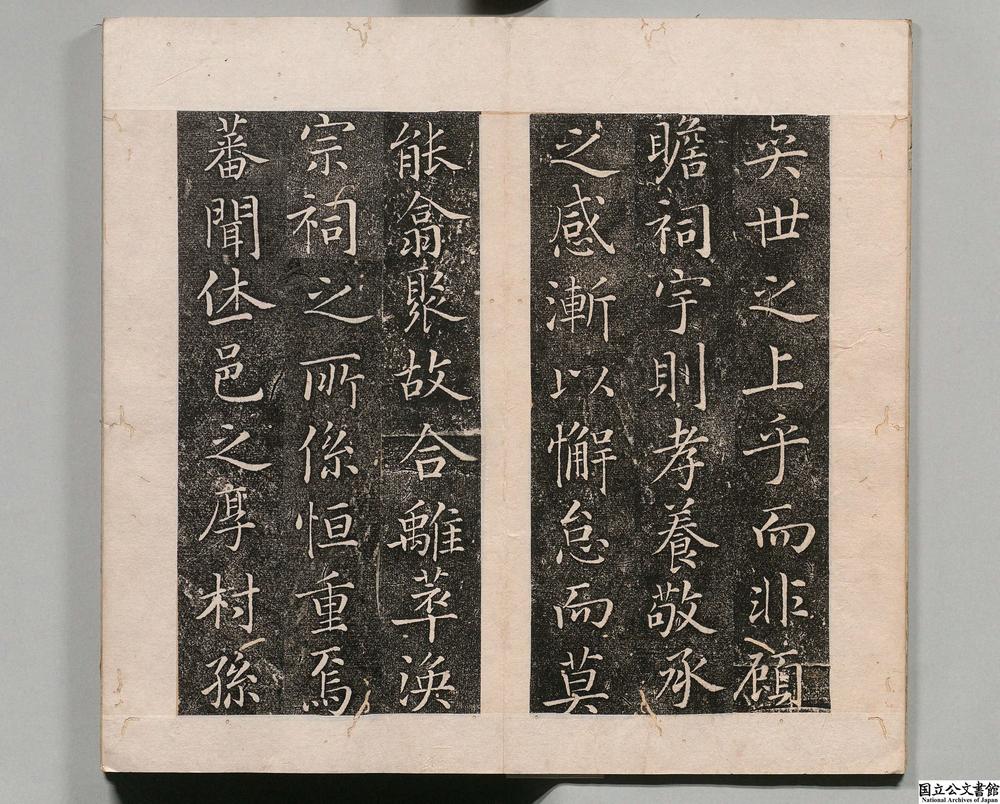 奕世之上乎而非顧
瞻祠宇則孝養敬承
之感漸以懈怠而莫
能翕聚故合離萃渙
宗祠之所係恒重焉
蕃聞休邑之厚村孫
国立公文書館
National Archives of Japan